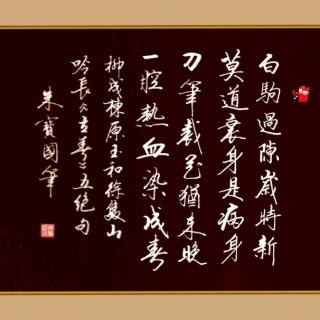 白駒過隙嵗時新
莫道衰身是病身
刀筆裁花猶未晚
一腔熱血染成春
柳成棟原玉和徐雙山
吟長立春之五絕句
朱寶國筆